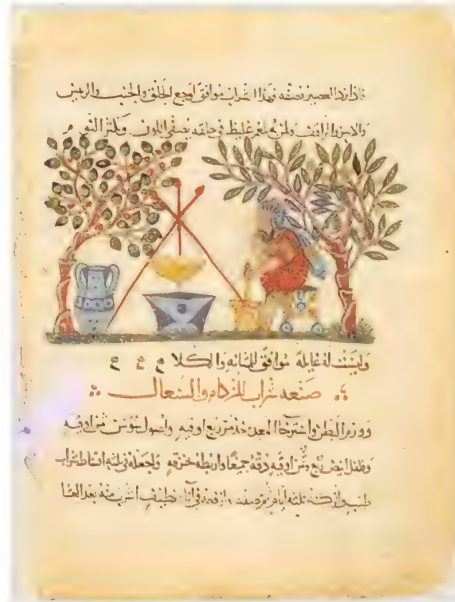 العصير نصفه وهذا الشراب موافق لوجع الحلق والجنب والرئتين
ولمن بلغم غليظ في حلقه يصفي اللون ويكثر النوم
وليست له غايلة موافق للمثانة والكلا
صنعة شراب للزكام والسعال
وورم البطن واسترخا المعدة خذ مر ربع اوقيه واصول سوسن ثمن اوقيه
وفلفل ابيض ربع وثمن اوقيه دقه جميعا واربطه بخرقه واجعله في ثلثة اقساط شراب
طيب واتركه ثلثة ايام ثم صفه وارفعه في اناء نظيف اشرب منه بعد العشا